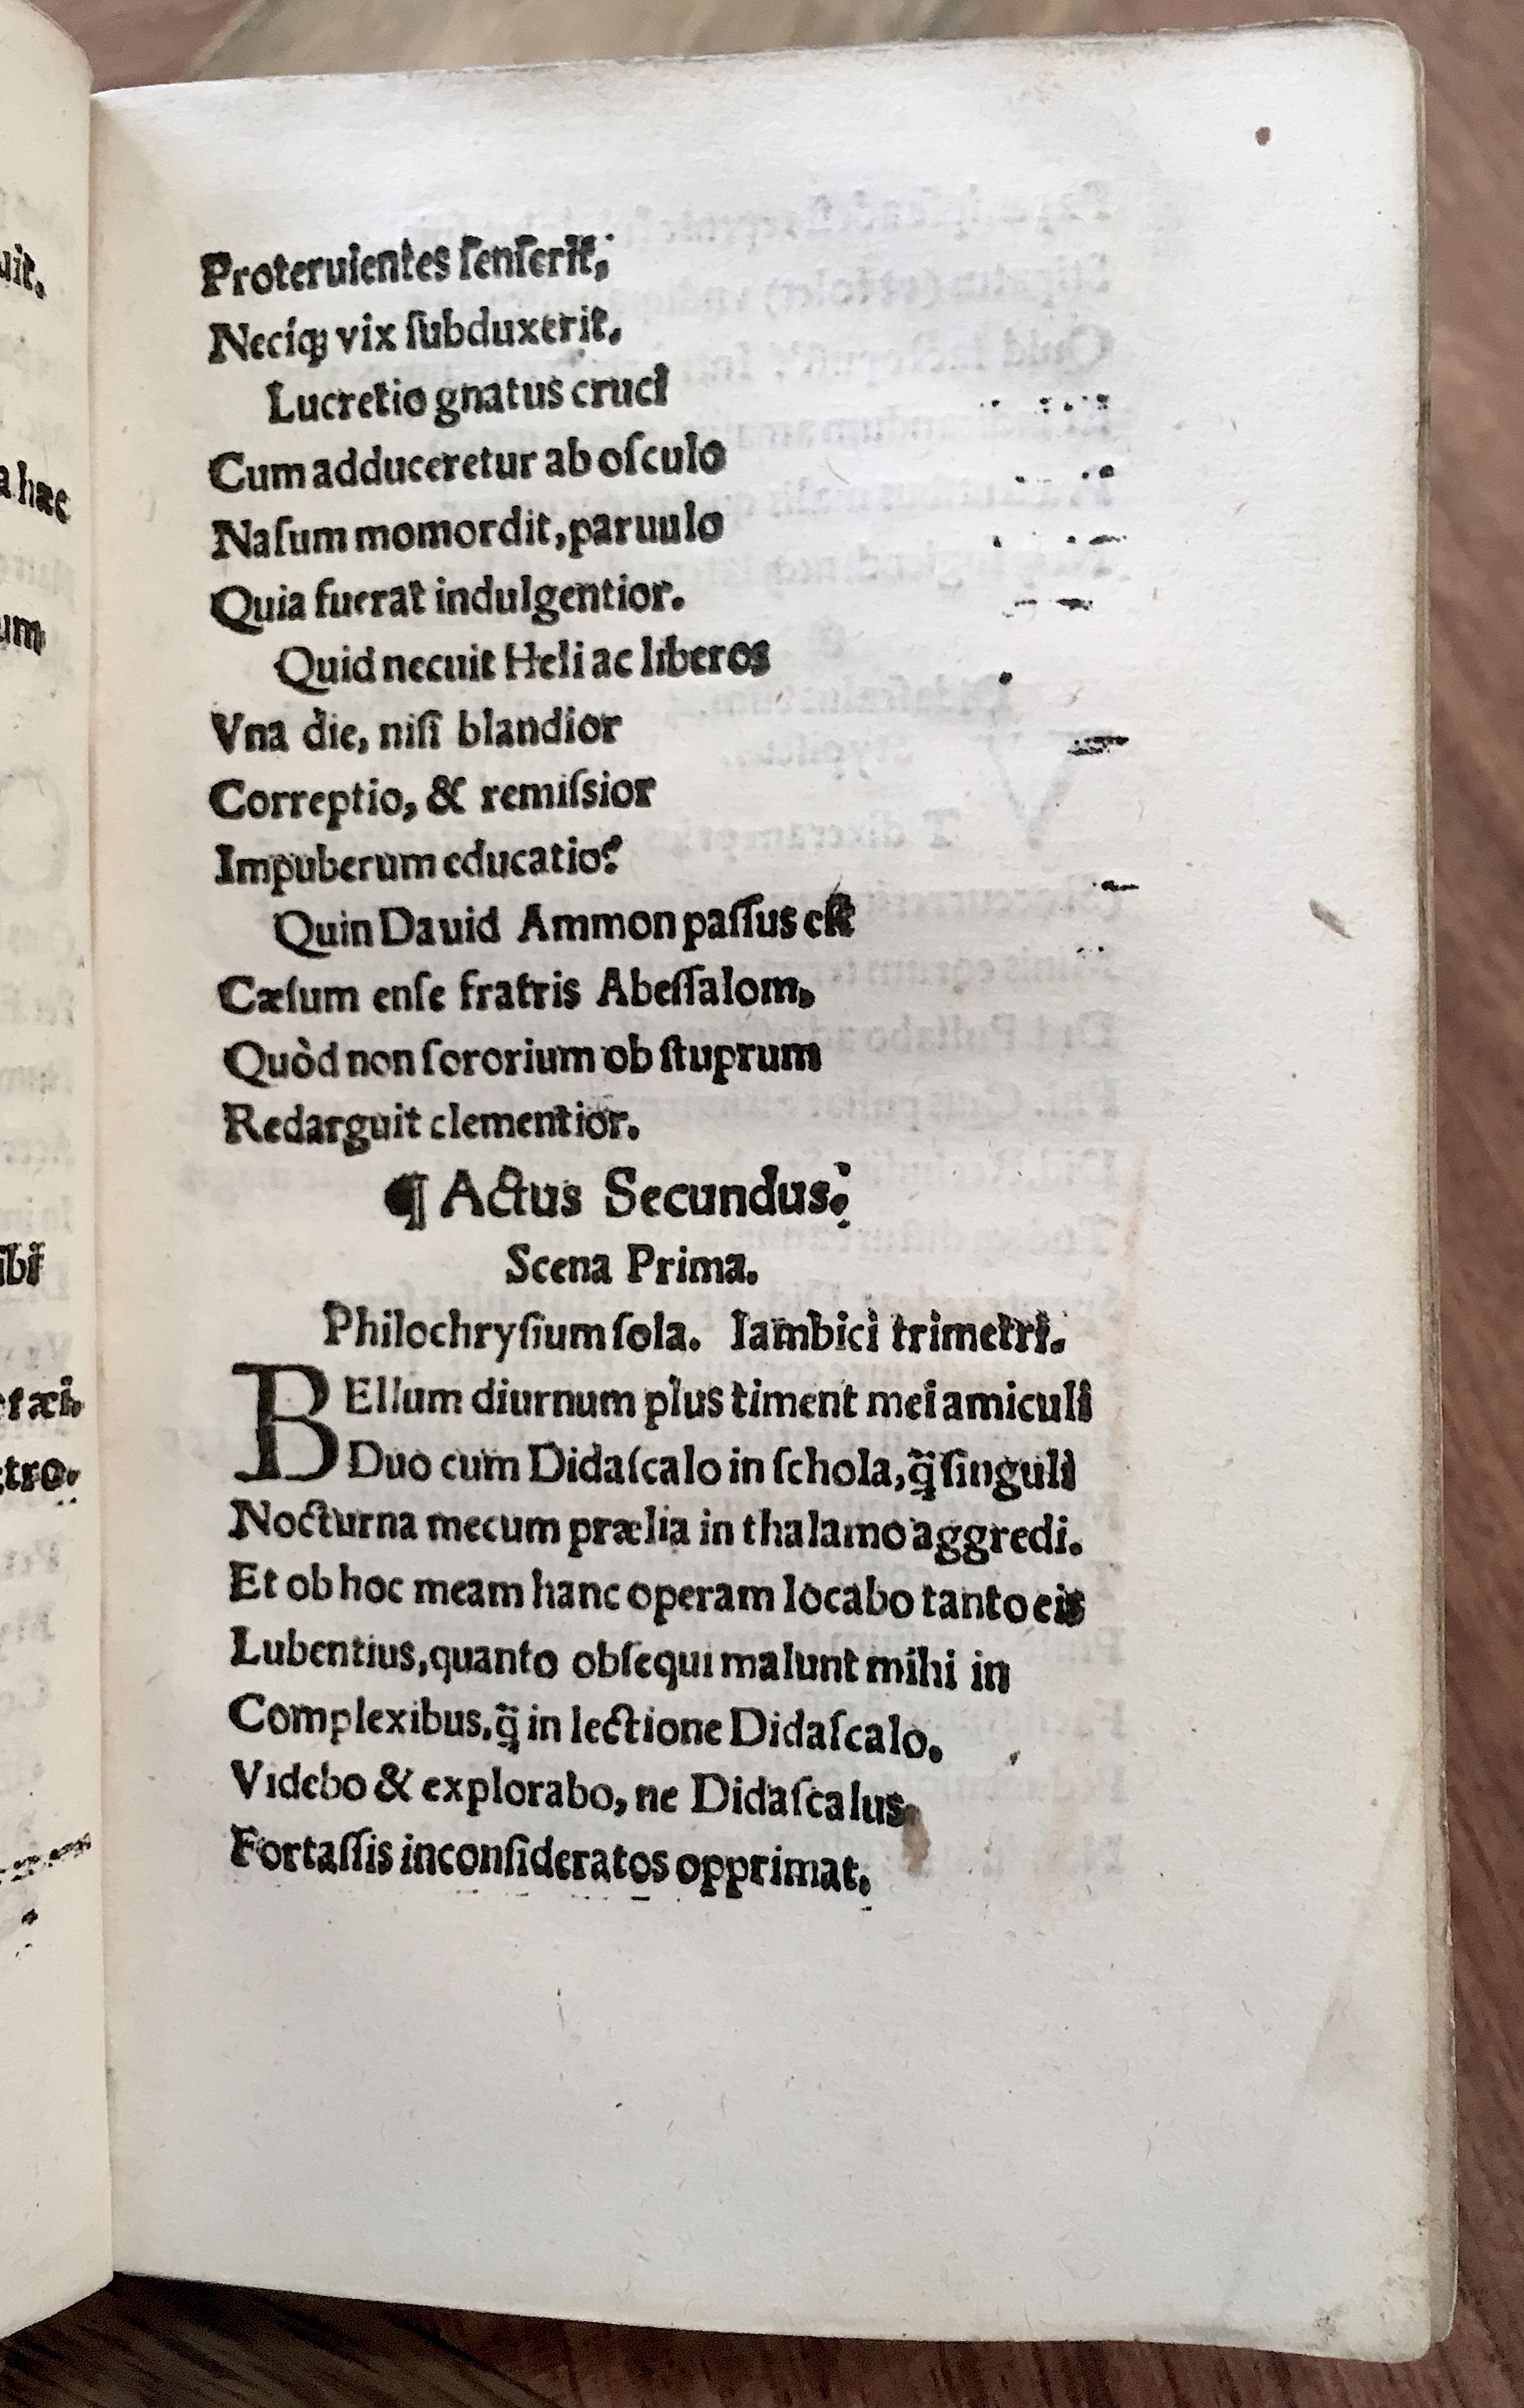 Proteruientes ſenſerit,
Neciq́ꝫ vix ſubduxerit.
Lucretio gnatus cruci
Cum adduceretur ab oſculo
Naſum momordit, paruulo
Quia fuerat indulgentior.
Quid necuit Heli ac liberos
Vna die, niſi blandior
Correptio, & remiſsior
Impuberum educatio?
Quin Dauid Ammon paſſus eſt
Cæſum enſe fratris Abeſſalom,
Quòd non ſororium ob ſtuprum
Redarguit clementior.
¶ Actus Secundus.
Scena Prima.
Philochryſium ſola. Iambici trimetri.
BEllum diurnum plus timent mei amiculi
Duo cum Didaſcalo in ſchola, q̃ ſinguli
Nocturna mecum prælia in thalamo aggredi.
Et ob hoc meam hanc operam locabo tanto eis
Lubentius, quanto obſequi malunt mihi in
Complexibus, q̃ in lectione Didaſcalo.
Videbo & explorabo, ne Didaſcalus
Fortaſſis inconſideratos opprimat.
uit.
a hæc
um
ibi
tro.